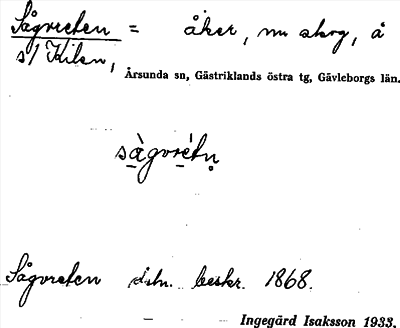 Sågvreten = åker, nu skog, å
s/ Kilen,
Årsunda sn, Gästriklands östra tg, Gävleborgs län.
sàgvrétn̥
Sågvreten dsln. beskr. 1868.
Ingegärd Isaksson 1933.